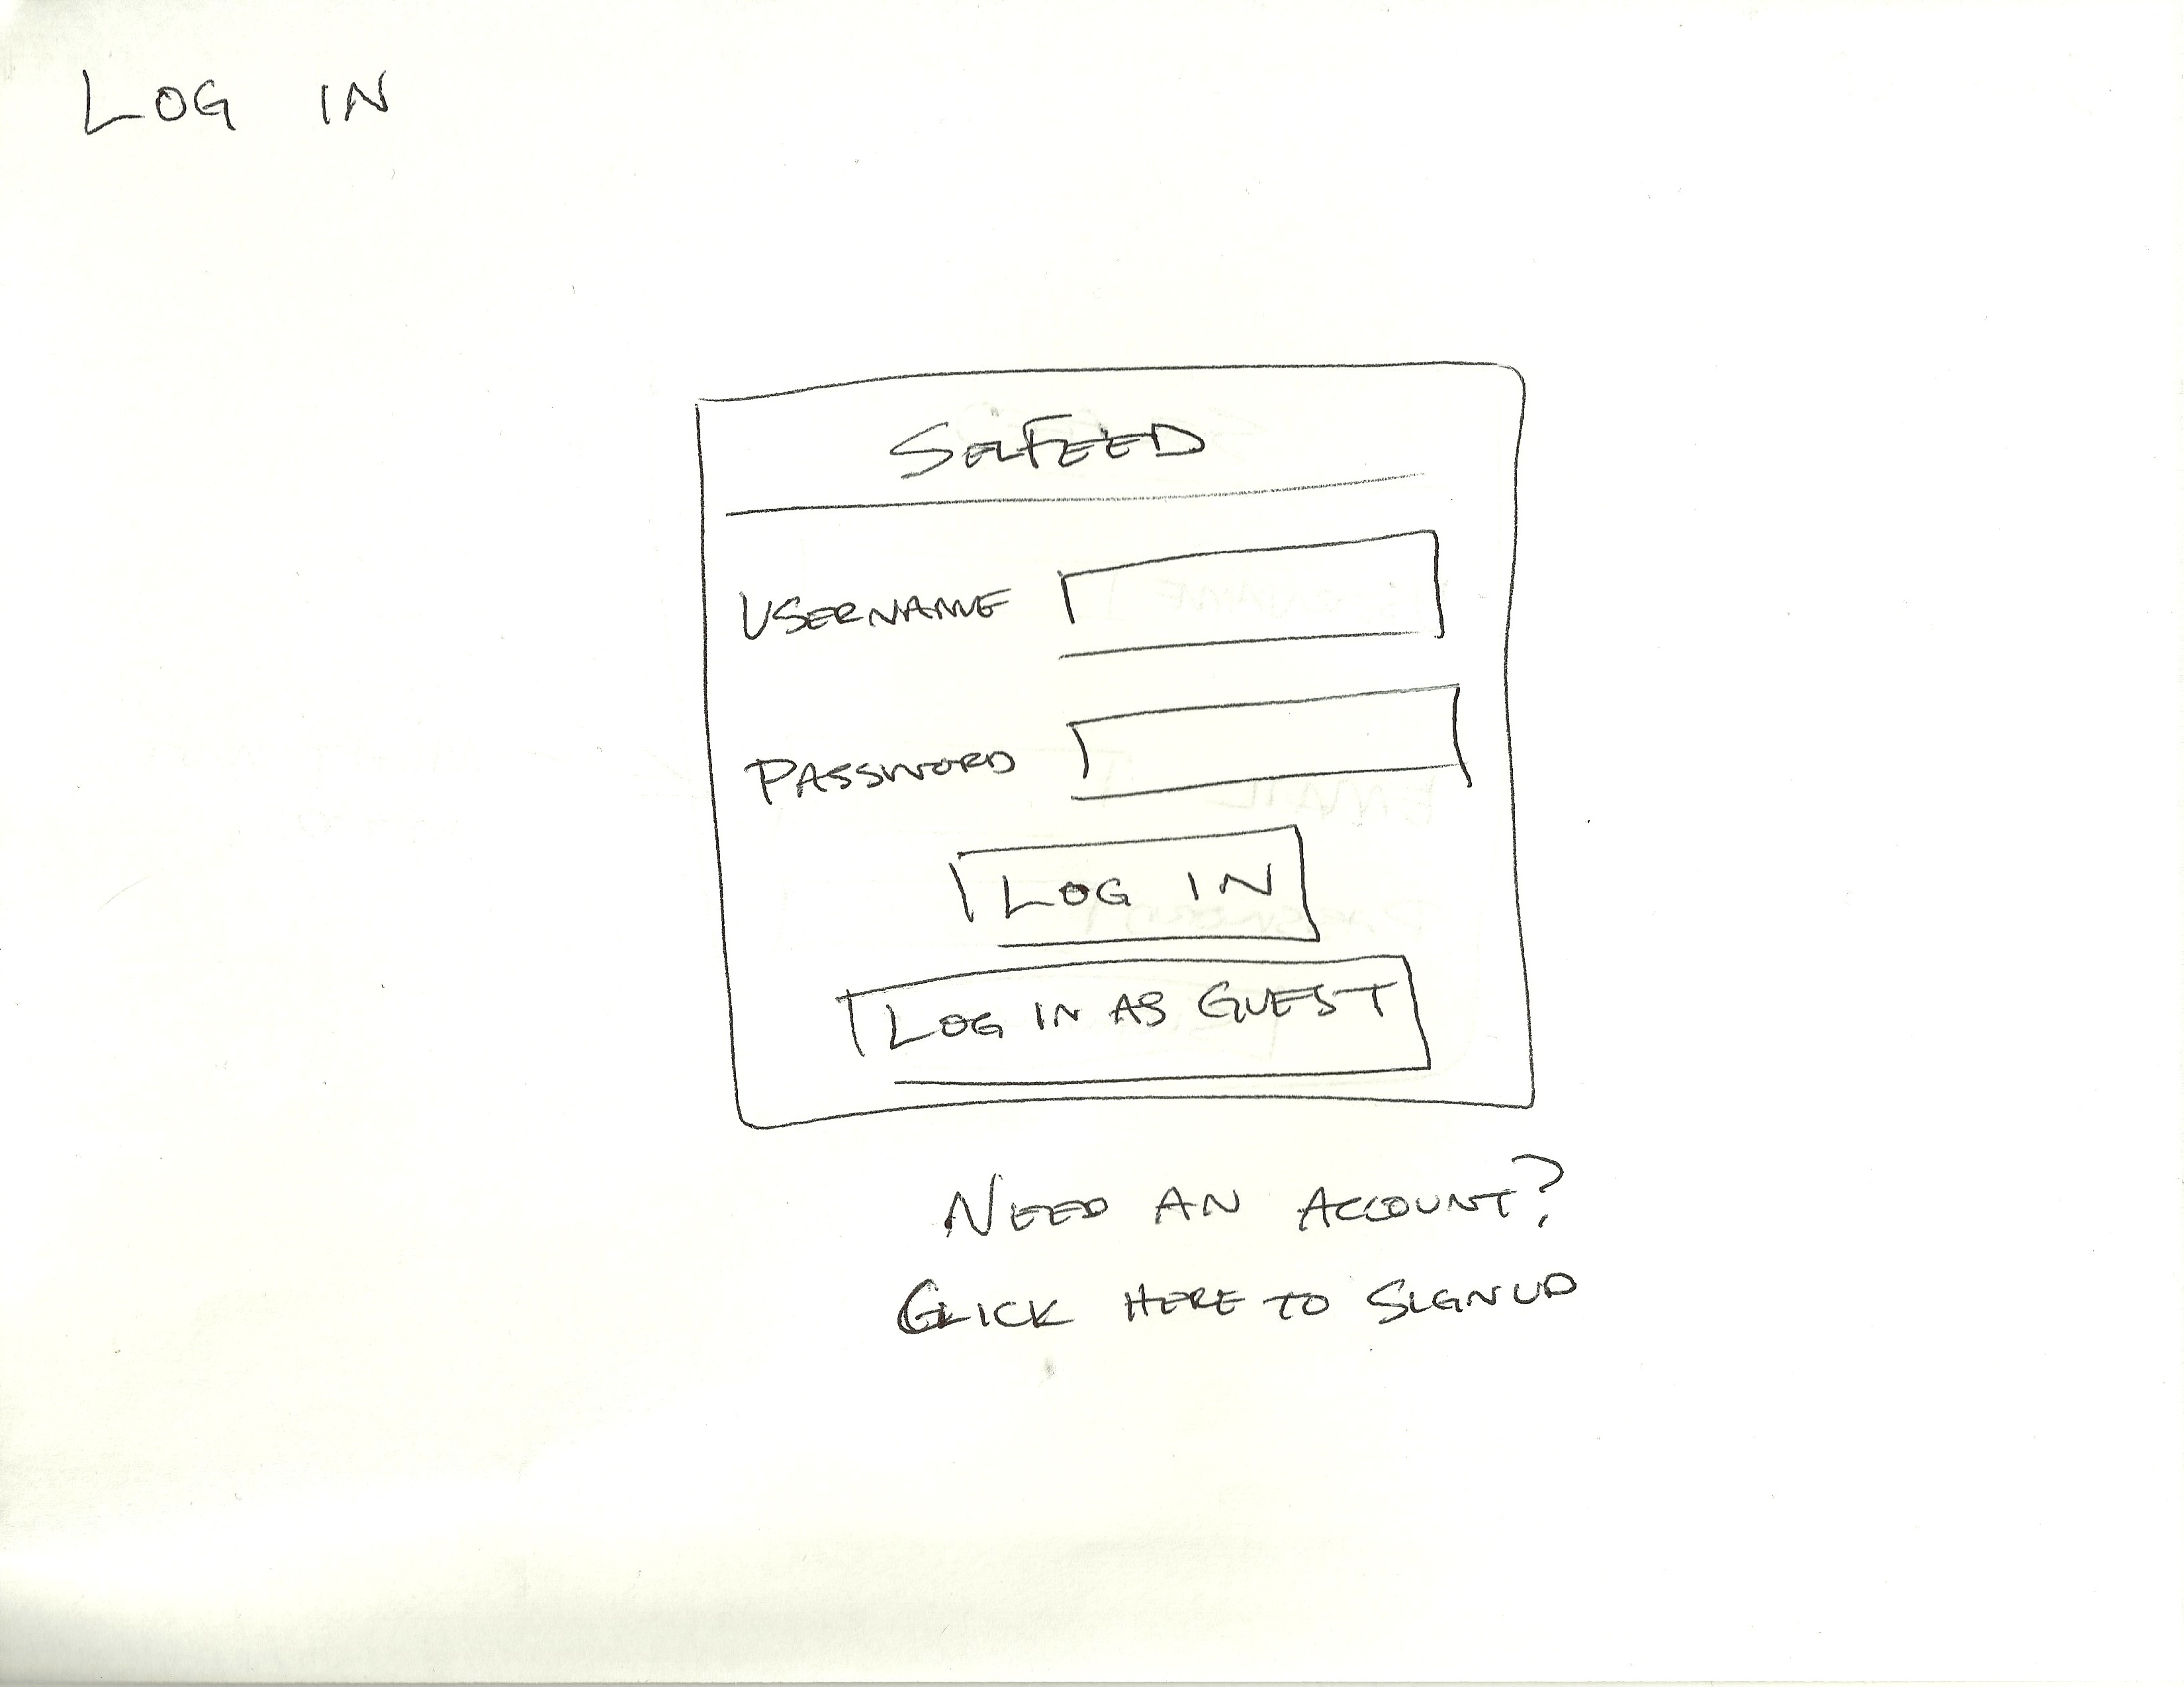 LOG IN
SELFEED
USERNAME
PASSWORD
LOG IN
LOG IN AS GUEST
NEED AN ACCOUNT?
CLICK HERE TO SIGN UP